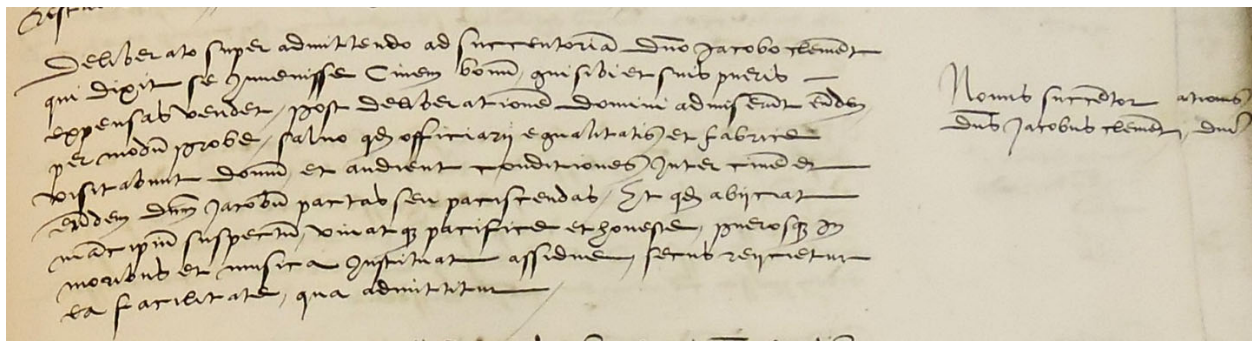 Deliberato super admittendo ad succentoriā dn̄o Jacobo clemēt
qui dixit se Invenisse Civem bonū, qui sibi et suis pueris
expensas vendet, post deliberationē domini admiserūt eūdem
per modū probe, salvo qd̄ officiarij equalitatis et fabrice
visitabunt domū, et audient conditiones Inter civē et
eūdem dn̄m Jacobū pactas seu paciscendas, Et qd̄ abijciat
mācipiū suspectū, vivat qz pacifice et honeste, puerosqz In
moribus et musica Instituat assidue, secus reijcietur
ea facilitate, qua admittitur
Novus succētor
dn̄s Jacobus clemēt,